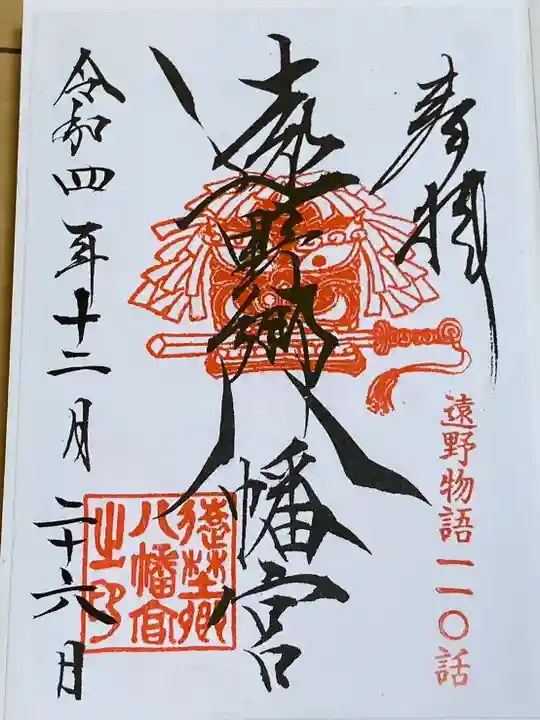 奉拝
遠野物語一一〇話
遠野郷八幡宮
遠野郷
八幡宮
之印
令和四年十二月二十六日